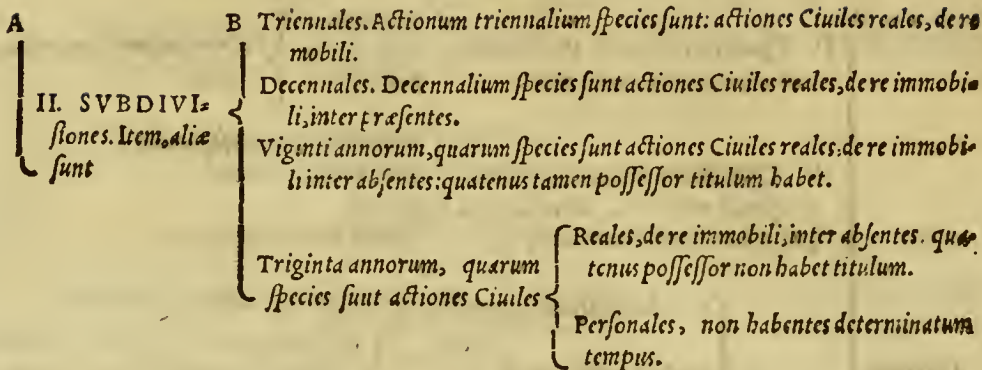 A
II. SVBDIVI⸗
ſiones. Item, aliæ
ſunt
B Triennales. Actionum triennalium ſpecies ſunt: actiones Ciuiles reales, de re
mobili.
Decennales. Decennalium ſpecies ſunt actiones Ciuiles reales, de re immobi⸗
li, inter præſentes.
Viginti annorum, quarum ſpecies ſunt actiones Ciuiles reales: de re immobi⸗
li inter abſentes: quatenus tamen poſſeſſor titulum habet.
Triginta annorum, quarum
ſpecies ſunt actiones Ciuiles
Reales, de re immobili, inter abſentes. qua⸗
tenus poſſeſſor non habet titulum.
Perſonales, non habentes determinatum
tempus.